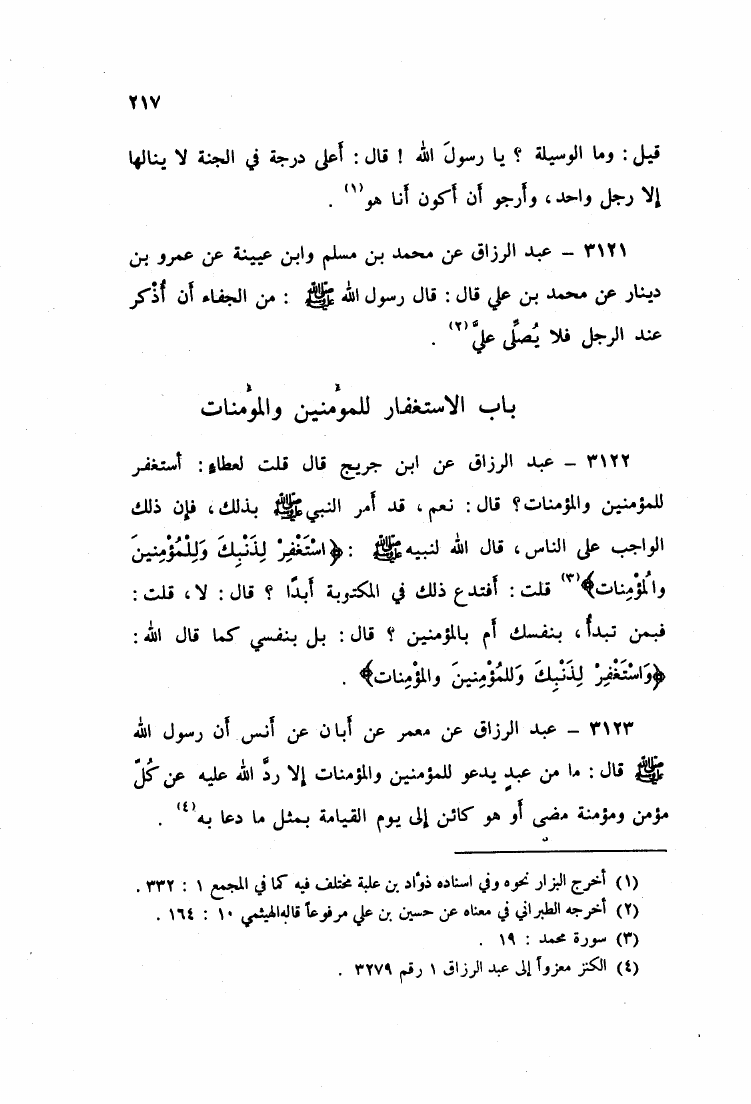 ٢١٧
قيل : وما الوسيلة ؟ يا رسولَ الله ! قال : أَعلى درجة في الجنة لا ينالها
إلا رجل واحد ، وأَرجو أن أَكون أَنا هو(١) .
٣١٢١ – عبد الرزاق عن محمد بن مسلم وابن عيينة عن عمرو بن
دينار عن محمد بن علي قال : قال رسول الله ﷺ : من الجفاء أَن أُذْكر
عند الرجل فلا يُصلِّي عليَّ(٢) .
باب الاستغفار للمؤمنين والمؤمنات
٣١٢٢ – عبد الرزاق عن ابن جريج قال قلت لعطاءٍ : أستغفر
للمؤمنين والمؤمنات ؟ قال : نعم ، قد أَمر النبي ﷺ بذلك ، فإن ذلك
الواجب على الناس ، قال الله لنبيه ﷺ : ﴿اسْتَغْفِرْ لِذَنْبِكَ وَلِلْمُؤْمِنِينَ
والمُؤْمِنات﴾(٣) قلت : أَفتدع ذلك في المكتوبة أَبدًا ؟ قال : لا ، قلت :
فبمن تبدأُ ، بنفسك أَم بالمؤمنين ؟ قال : بل بنفسي كما قال الله :
﴿وَاسْتَغْفِرْ لِذَنْبِكَ وَللمُؤْمِنينَ والمؤْمِنات﴾ .
٣١٢٣ – عبد الرزاق عن معمر عن أَبان عن أَنس أَن رسول الله
ﷺ قال : ما من عبدٍ يدعو للمؤمنين والمؤمنات إلا ردَّ الله عليه عن كُلّ
مؤمن ومؤمنة مضى أَو هو كائن إلى يوم القيامة بمثل ما دعا به(٤) .
(١) أخرج البزار نحوه وفي اسناده ذوّاد بن علبة مختلف فيه كما في المجمع ١ : ٣٣٢ .
(٢) أخرجه الطبراني في معناه عن حسين بن علي مرفوعاً قاله الهيثمي ١٠ : ١٦٤ .
(٣) سورة محمد : ١٩ .
(٤) الكنز معزواً إلى عبد الرزاق ١ رقم ٣٢٧٩ .